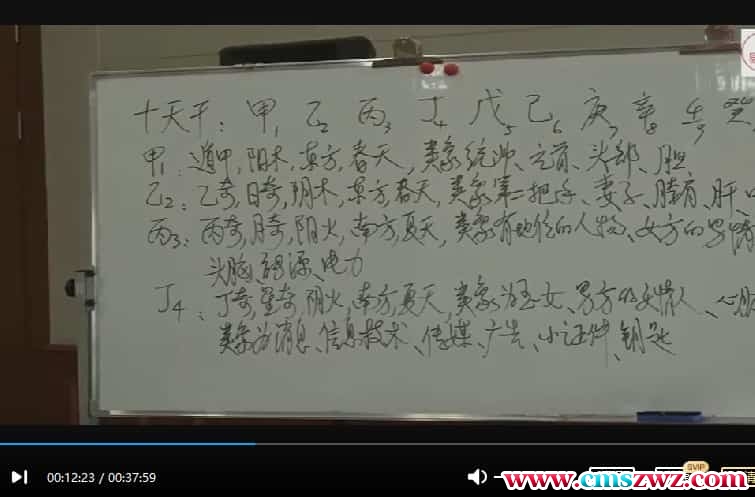 十天干：甲1 乙2 丙3 丁4 戊5 己6 庚7 辛8 壬9 癸
甲1：遁甲,阳木,东方,春天,类象统帅、元首、头部、胆
乙2：乙奇,日奇,阴木,东方,春天,类象第二把手、妻子、肝、
丙3：丙奇,月奇,阳火,南方,夏天,类象有地位的人物、女方的男情
头脑、能源、电力
丁4：丁奇,星奇,阴火,南方,夏天,类象为玉女、男方的女情人、心脏
类象为消息、信息技术、传媒、广告、小证件、钥匙
00:12:23 / 00:37:59
SVIP
www.cmszwz.com